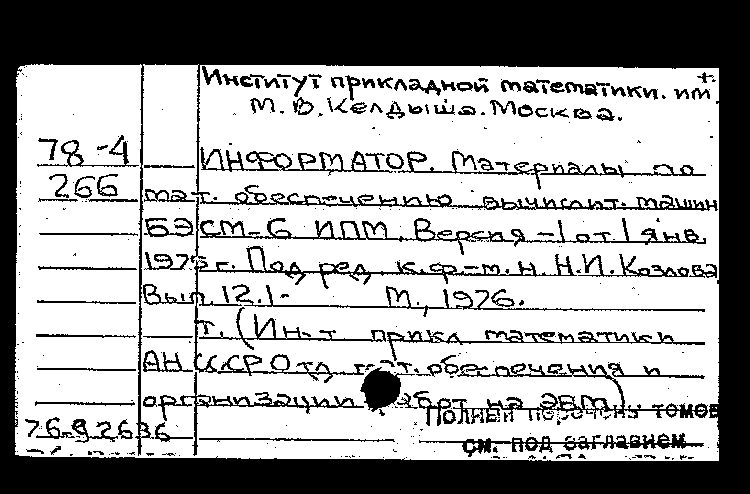 Институт прикладной математики. им.
М.В.Келдыша. Москва.
78-4
ИНФОРМАТОР. Материалы по
266
мат. обеспечению вычислит. машин
БЭСМ-6 ИПМ. Версия -1 от 1 янв.
1975 г. Под ред. к.ф.-м.н. Н.И.Козлова
Вып. 12.1- М., 1976.
т. (Ин-т прикл математики
АН СССР Отд мат. обеспечения и
организации работ на ЭВМ)
Полный перечень томов
76-92636
см. под заглавием